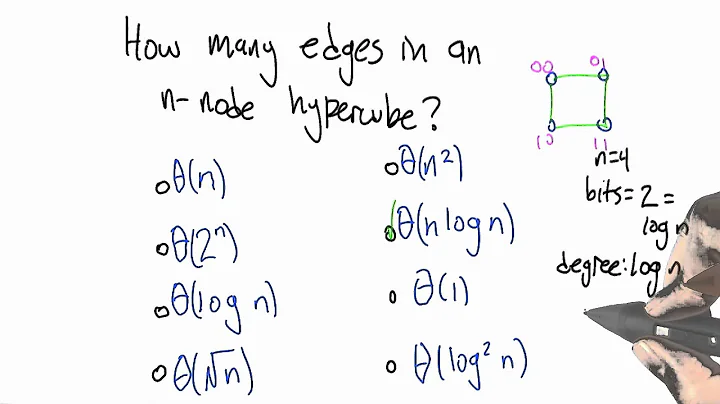 How many edges in an
n-node hypercube?
θ(n)
θ(2ⁿ)
θ(log n)
θ(√n)
θ(n²)
θ(n log n)
θ(1)
θ(log² n)
00 01
10 11
n=4
bits=2=
log n
degree: log n